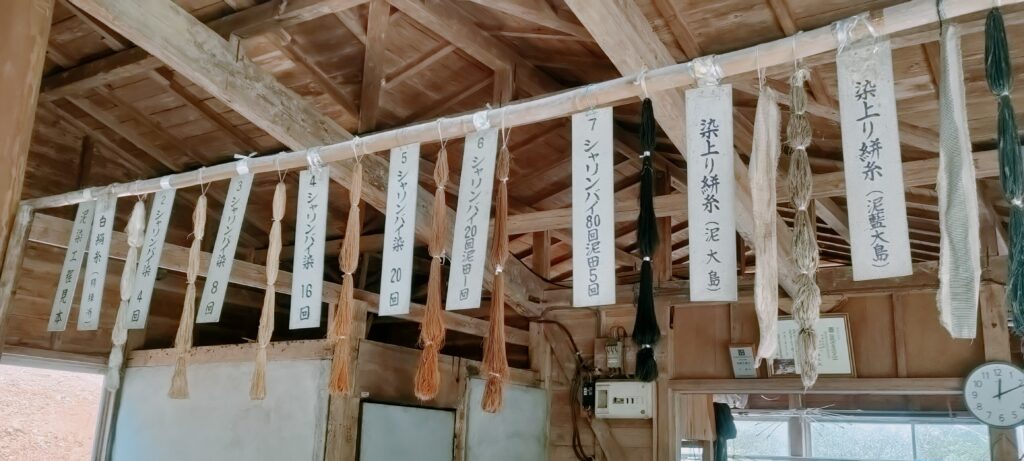 泥染工程見本
白絹糸(精練済)
2 シャリンバイ 4回
3 シャリンバイ 8回
4 シャリンバイ染 16回
5 シャリンバイ染 20回
6 シャリンバイ20回泥田1回
7 シャリンバイ80回泥田5回
染上り絣糸(泥大島)
染上り絣糸(泥藍大島)